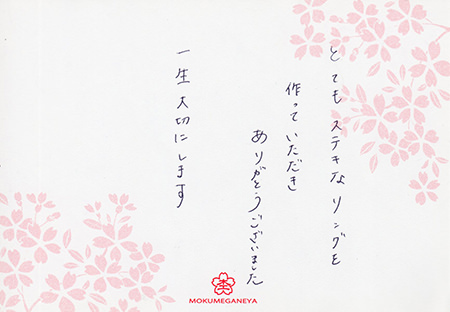 とてもステキなリングを
作っていただき
ありがとうございました
一生大切にします
MOKUMEGANEYA